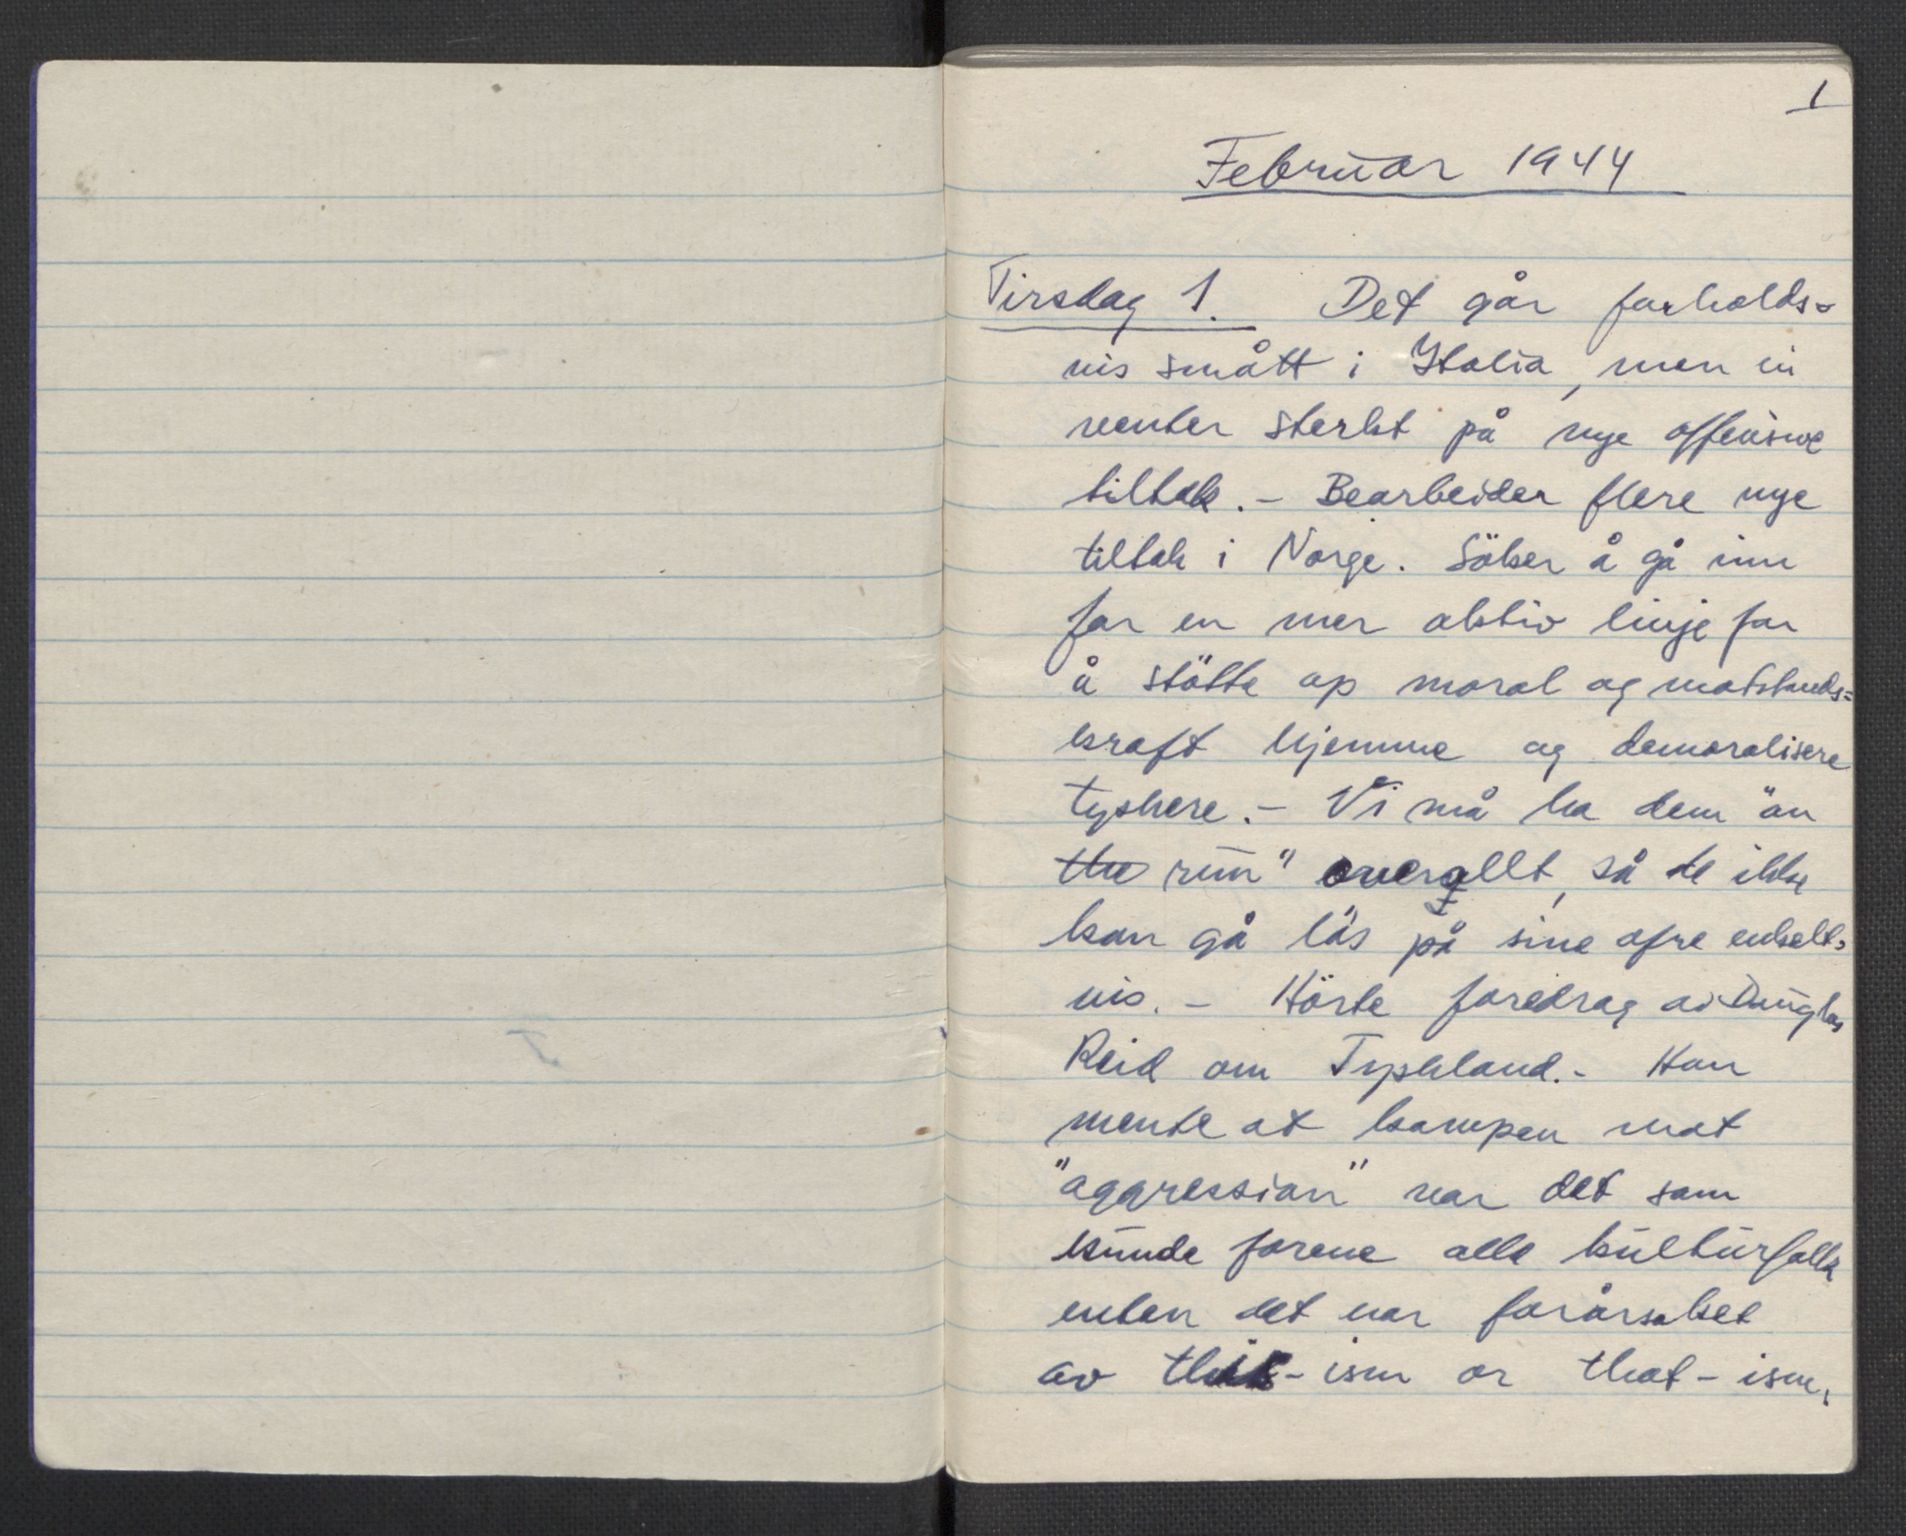 1
Februar 1944
Tirsdag 1. Det går forholds-
vis smått i Italia, men vi
venter sterkt på nye offensive
tiltak. - Bearbeider flere nye
tiltak i Norge. Söker å gå inn
for en mer aktiv linje for
å stötte op moral og motstands=
kraft hjemme og demoralisere
tyskere. - Vi må ha dem "on
the run" overallt, så de ikke
kan gå lös på sine ofre enkelt-
vis. - Hörte foredrag av Douglas
Reid om Tyskland. - Han
mente at kampen mot
"aggression" var det som
kunde forene alle kulturfolk
enten det var forårsaket
av this-ism or that-ism,